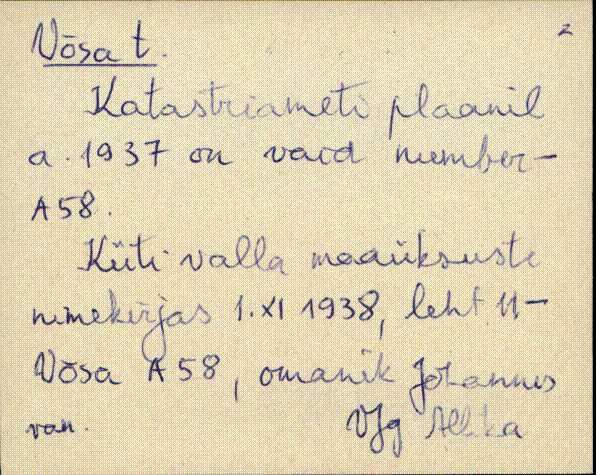 2
Võsa t.
Katastriameti plaanil
a. 1937 on vaid number-
A 58.
Küti valla maaüksuste
nimekirjas 1.XI 1938, leht 11-
Võsa A 58, omanik Johannes
van. Vjg Allika